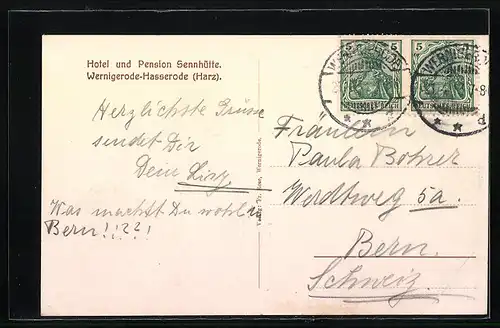 Hotel und Pension Sennhütte.
Wernigerode-Hasserode (Harz).
Herzlichste Grüsse
sendet Dir
Dein
Was machst Du wohl in
Bern!!??!
Verlag: Fr. Rose, Wernigerode.
5 5
DEUTSCHES REICH
WERNIGERODE
Fräulein
Paula Bohrer
Werdtweg 5a.
Bern.
Schweiz.